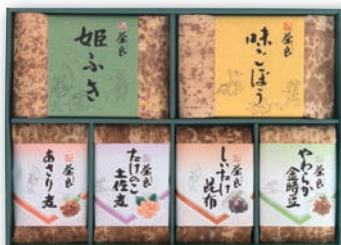 奈良
姫ふき
奈良
味ごぼう
奈良
あさり煮
奈良
たけのこ
土佐煮
奈良
しいたけ
昆布
奈良
やわらか
金時豆